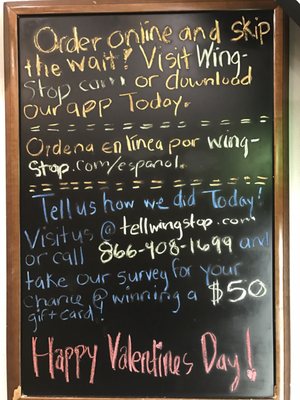 Order online and skip
the wait! Visit Wing-
Stop.com or download
our app Today.
Ordena en línea por wing-
stop.com/espanol.
Tell us how we did Today!
Visit us @ tellwingstop.com
or call 866-408-1699 and
take our survey for your
chance @ winning a $50
gift card!
Happy Valentines Day!